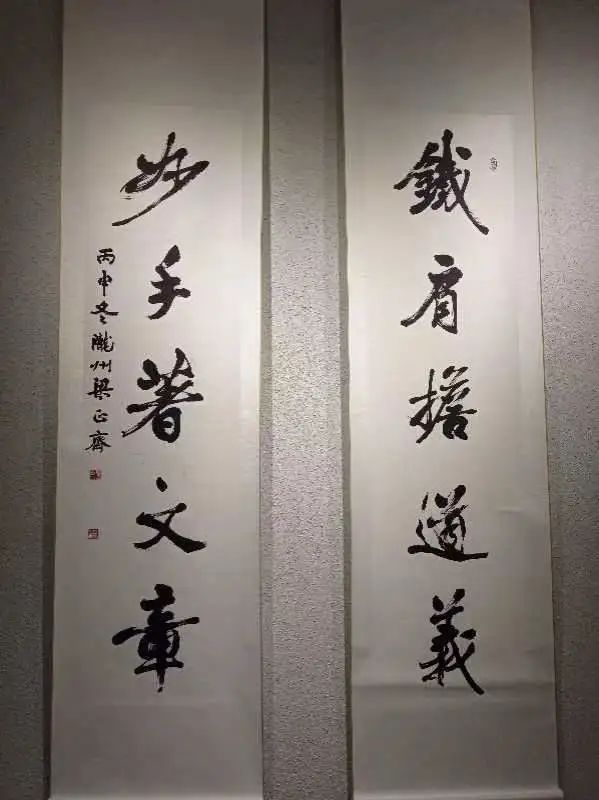 鐵肩擔道義
妙手著文章
丙申冬隴州梁正齋